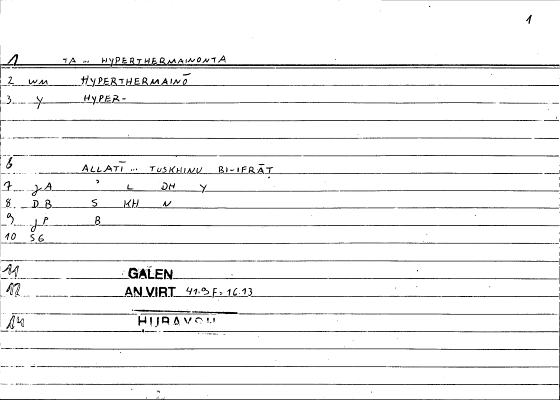 1
1 TA ... HYPERTHERMAINONTA
2 wm HYPERTHERMAINŌ
3 y HYPER-
6 ALLATĪ ... TUSKHINU BI-IFRĀṬ
7 gA ʾ L DH Y
8 DB S KH N
9 gP B
10 SG
11 GALEN
12 AN VIRT 41.9 F = 16.13
14 ḤUBAYSH